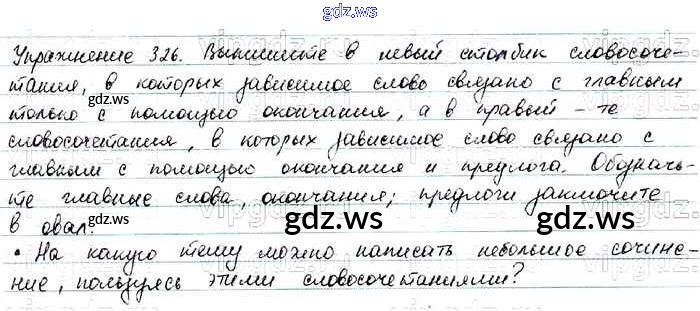 www.gdz.ws
Упражнение 326. Выпишите в левый столбик словосоче-
тания, в которых зависимое слово связано с главным
только с помощью окончания, а в правый - те
словосочетания, в которых зависимое слово связано с
главным с помощью окончания и предлога. Обозначь-
те главные слова, окончания; предлоги заключите
в овал.
• На какую тему можно написать небольшое сочине-
ние, пользуясь этими словосочетаниями?
gdz.ws
gdz.ws
gdz.ws
gdz.ws
gdz.ws
gdz.ws